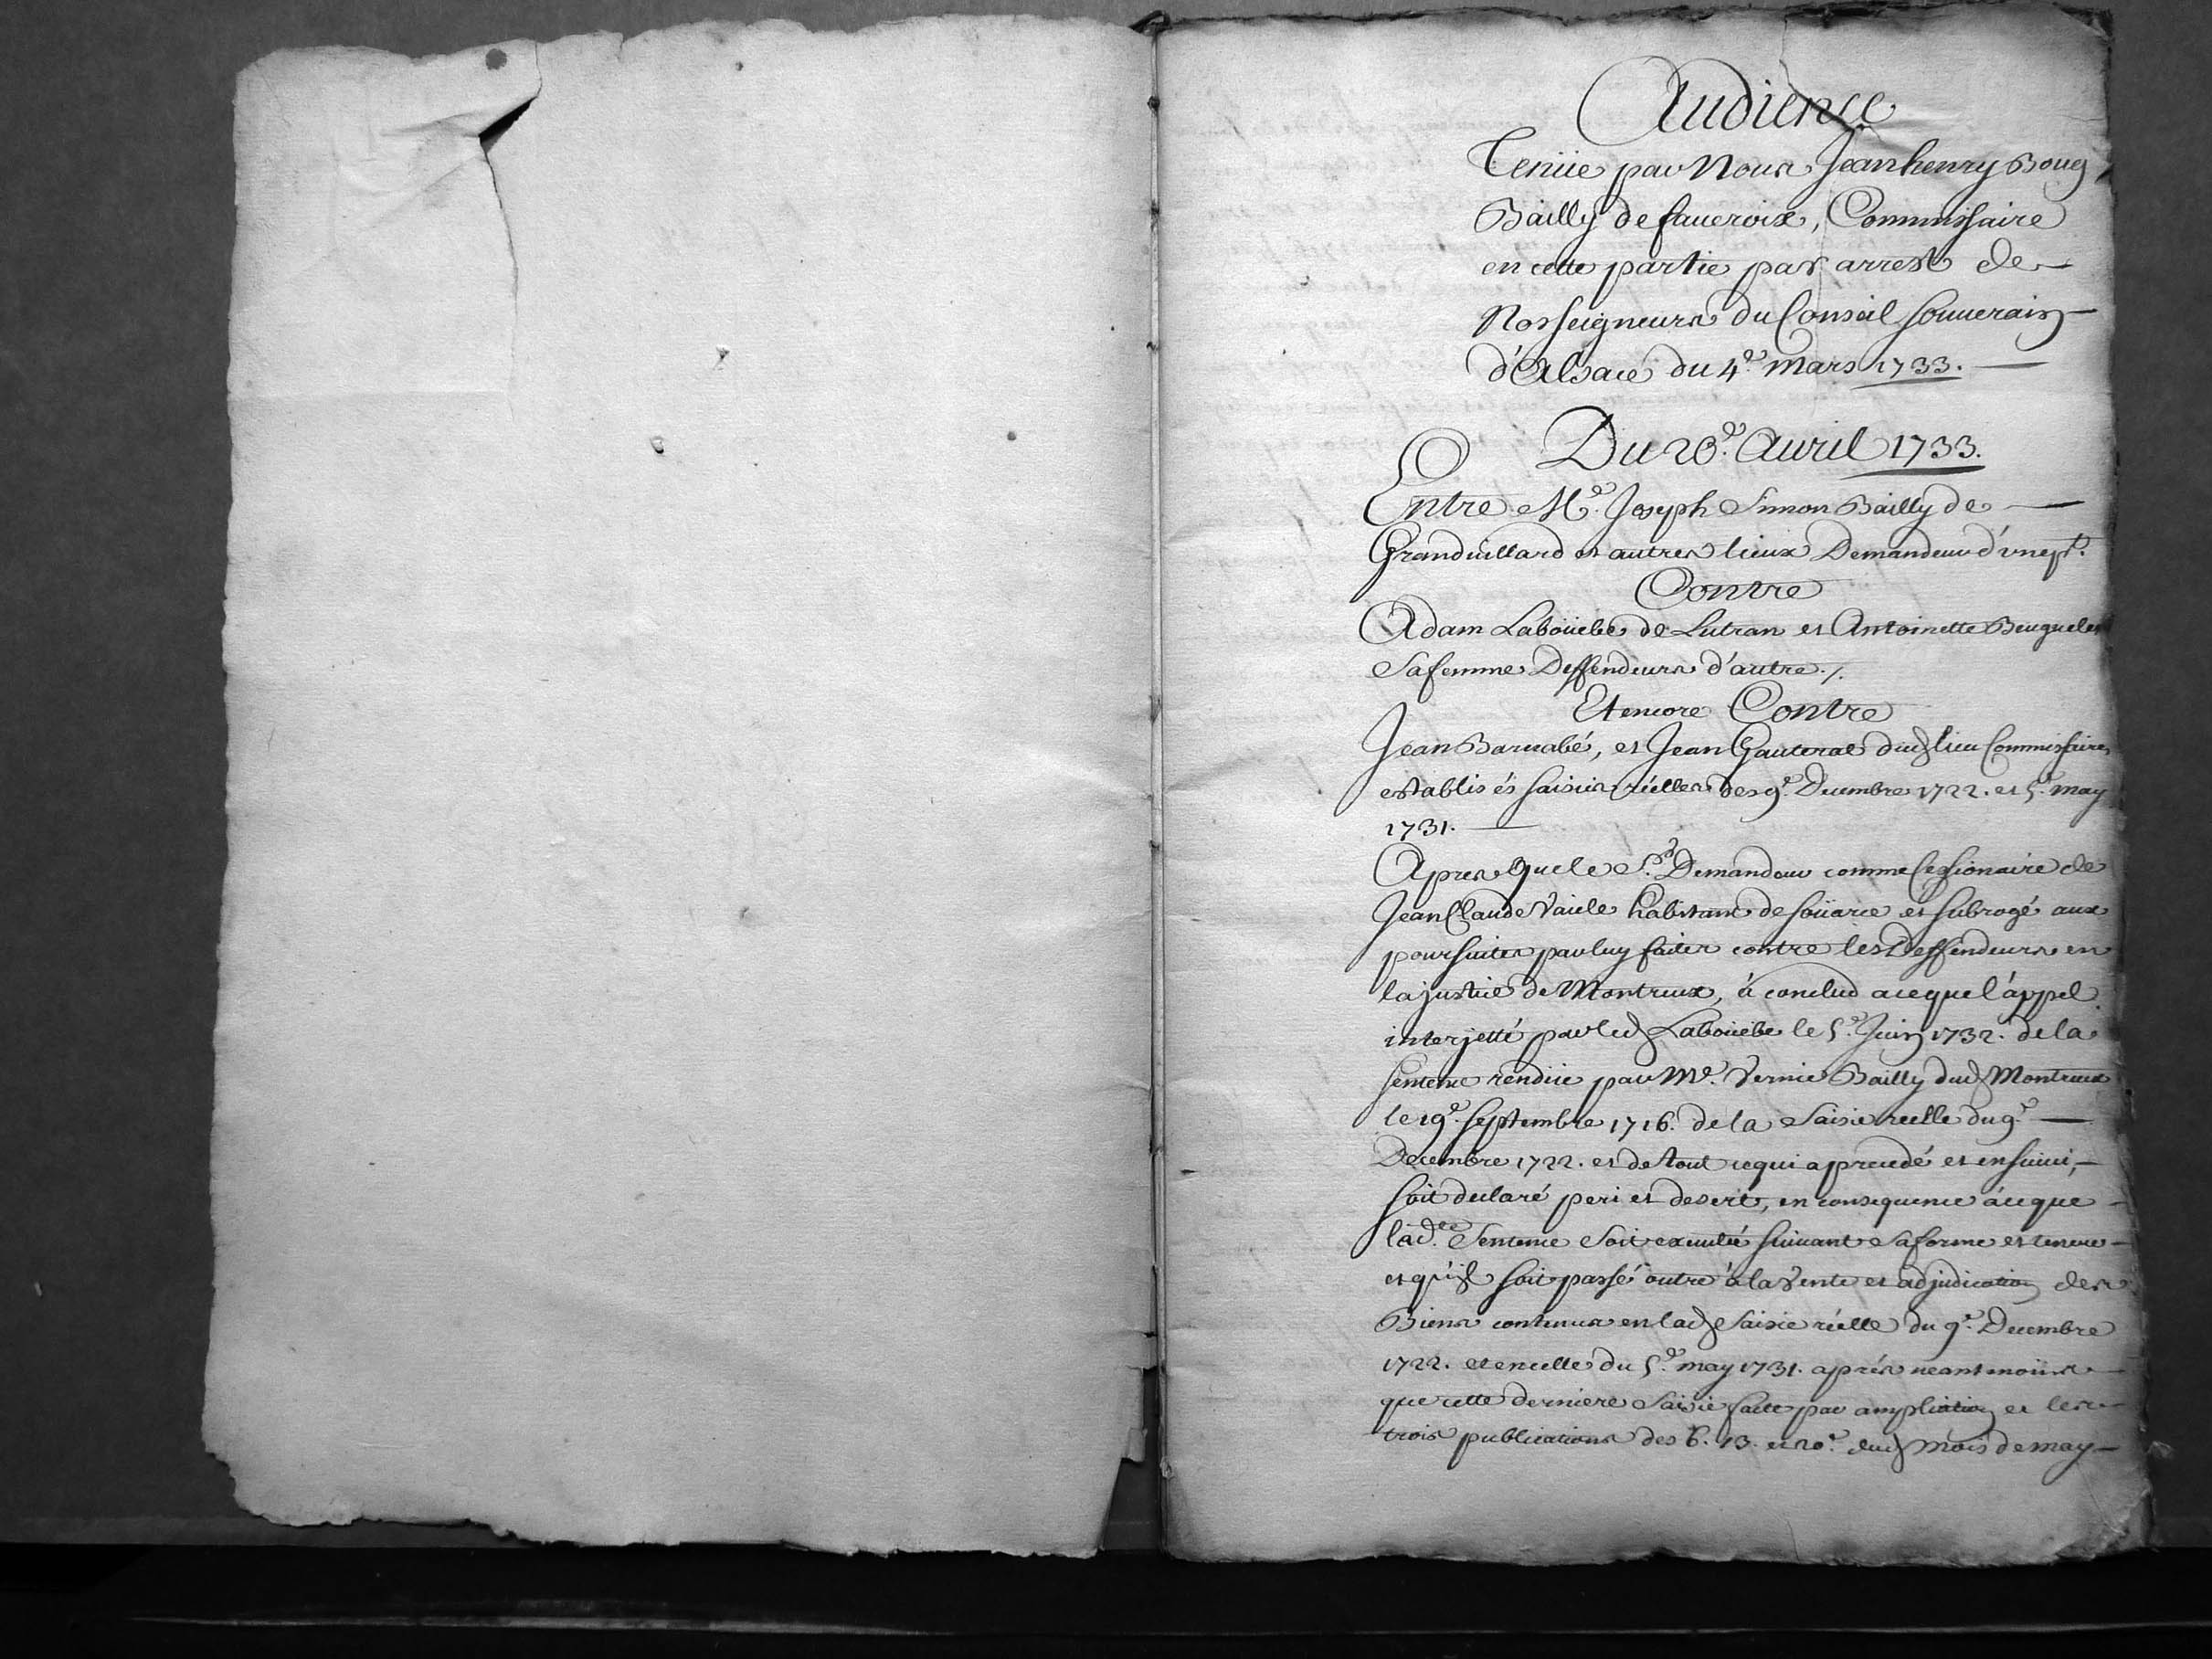 Audience
Tenüe par Nous Jean henry Boug
Bailly de faueroix, Commissaire
en cette partie par arrest de
Nosseigneurs du Conseil souuerain
d'Alsace du 4e. mars 1733.
Du 20e. Auril 1733.
Entre Me. Joseph Simon Bailly de
Granduillard et autres lieux Demandeur d'vne pt.
Contre
Adam Laboüebe de Lutran et Antoinette Beuguelet
sa femme Deffendeurs d'autre ./.
Et encore Contre
Jean Barnabé, et Jean Gauterat dud lieu Commissaires
establis és saisies réelles des 9e. Decembre 1722. et 5e. may
1731.
Apres que le Sr. Demandeur comme Cessionaire de
Jean Claude Vaicle habitant de soüarce et subrogé aux
poursuites par luy faites contre les Deffendeurs en
la justice de Montreux, à conclud a ce que l'appel
interjetté par led Laboüebe le 5e. Juin 1732. de la
sentence rendüe par Me. Vernie Bailly dud Montreux
le 19e. septembre 1716. de la saisie reelle du 9e.
Decembre 1722. et de tout ce qui a precedé et ensuiui,
soit declaré peri et desert, en consequence à ce que
lade. Sentence soit executée suiuant sa forme et teneur
et qu'il soit passé outre à la vente et adjudication des
Biens contenus en lad saisie réelle du 9e. Decembre
1722. et en celle du 5e. may 1731. aprés neantmoins
que cette derniere saisie faite par ampliation et les
trois publications des 6. 13. et 20e. dud mois de may